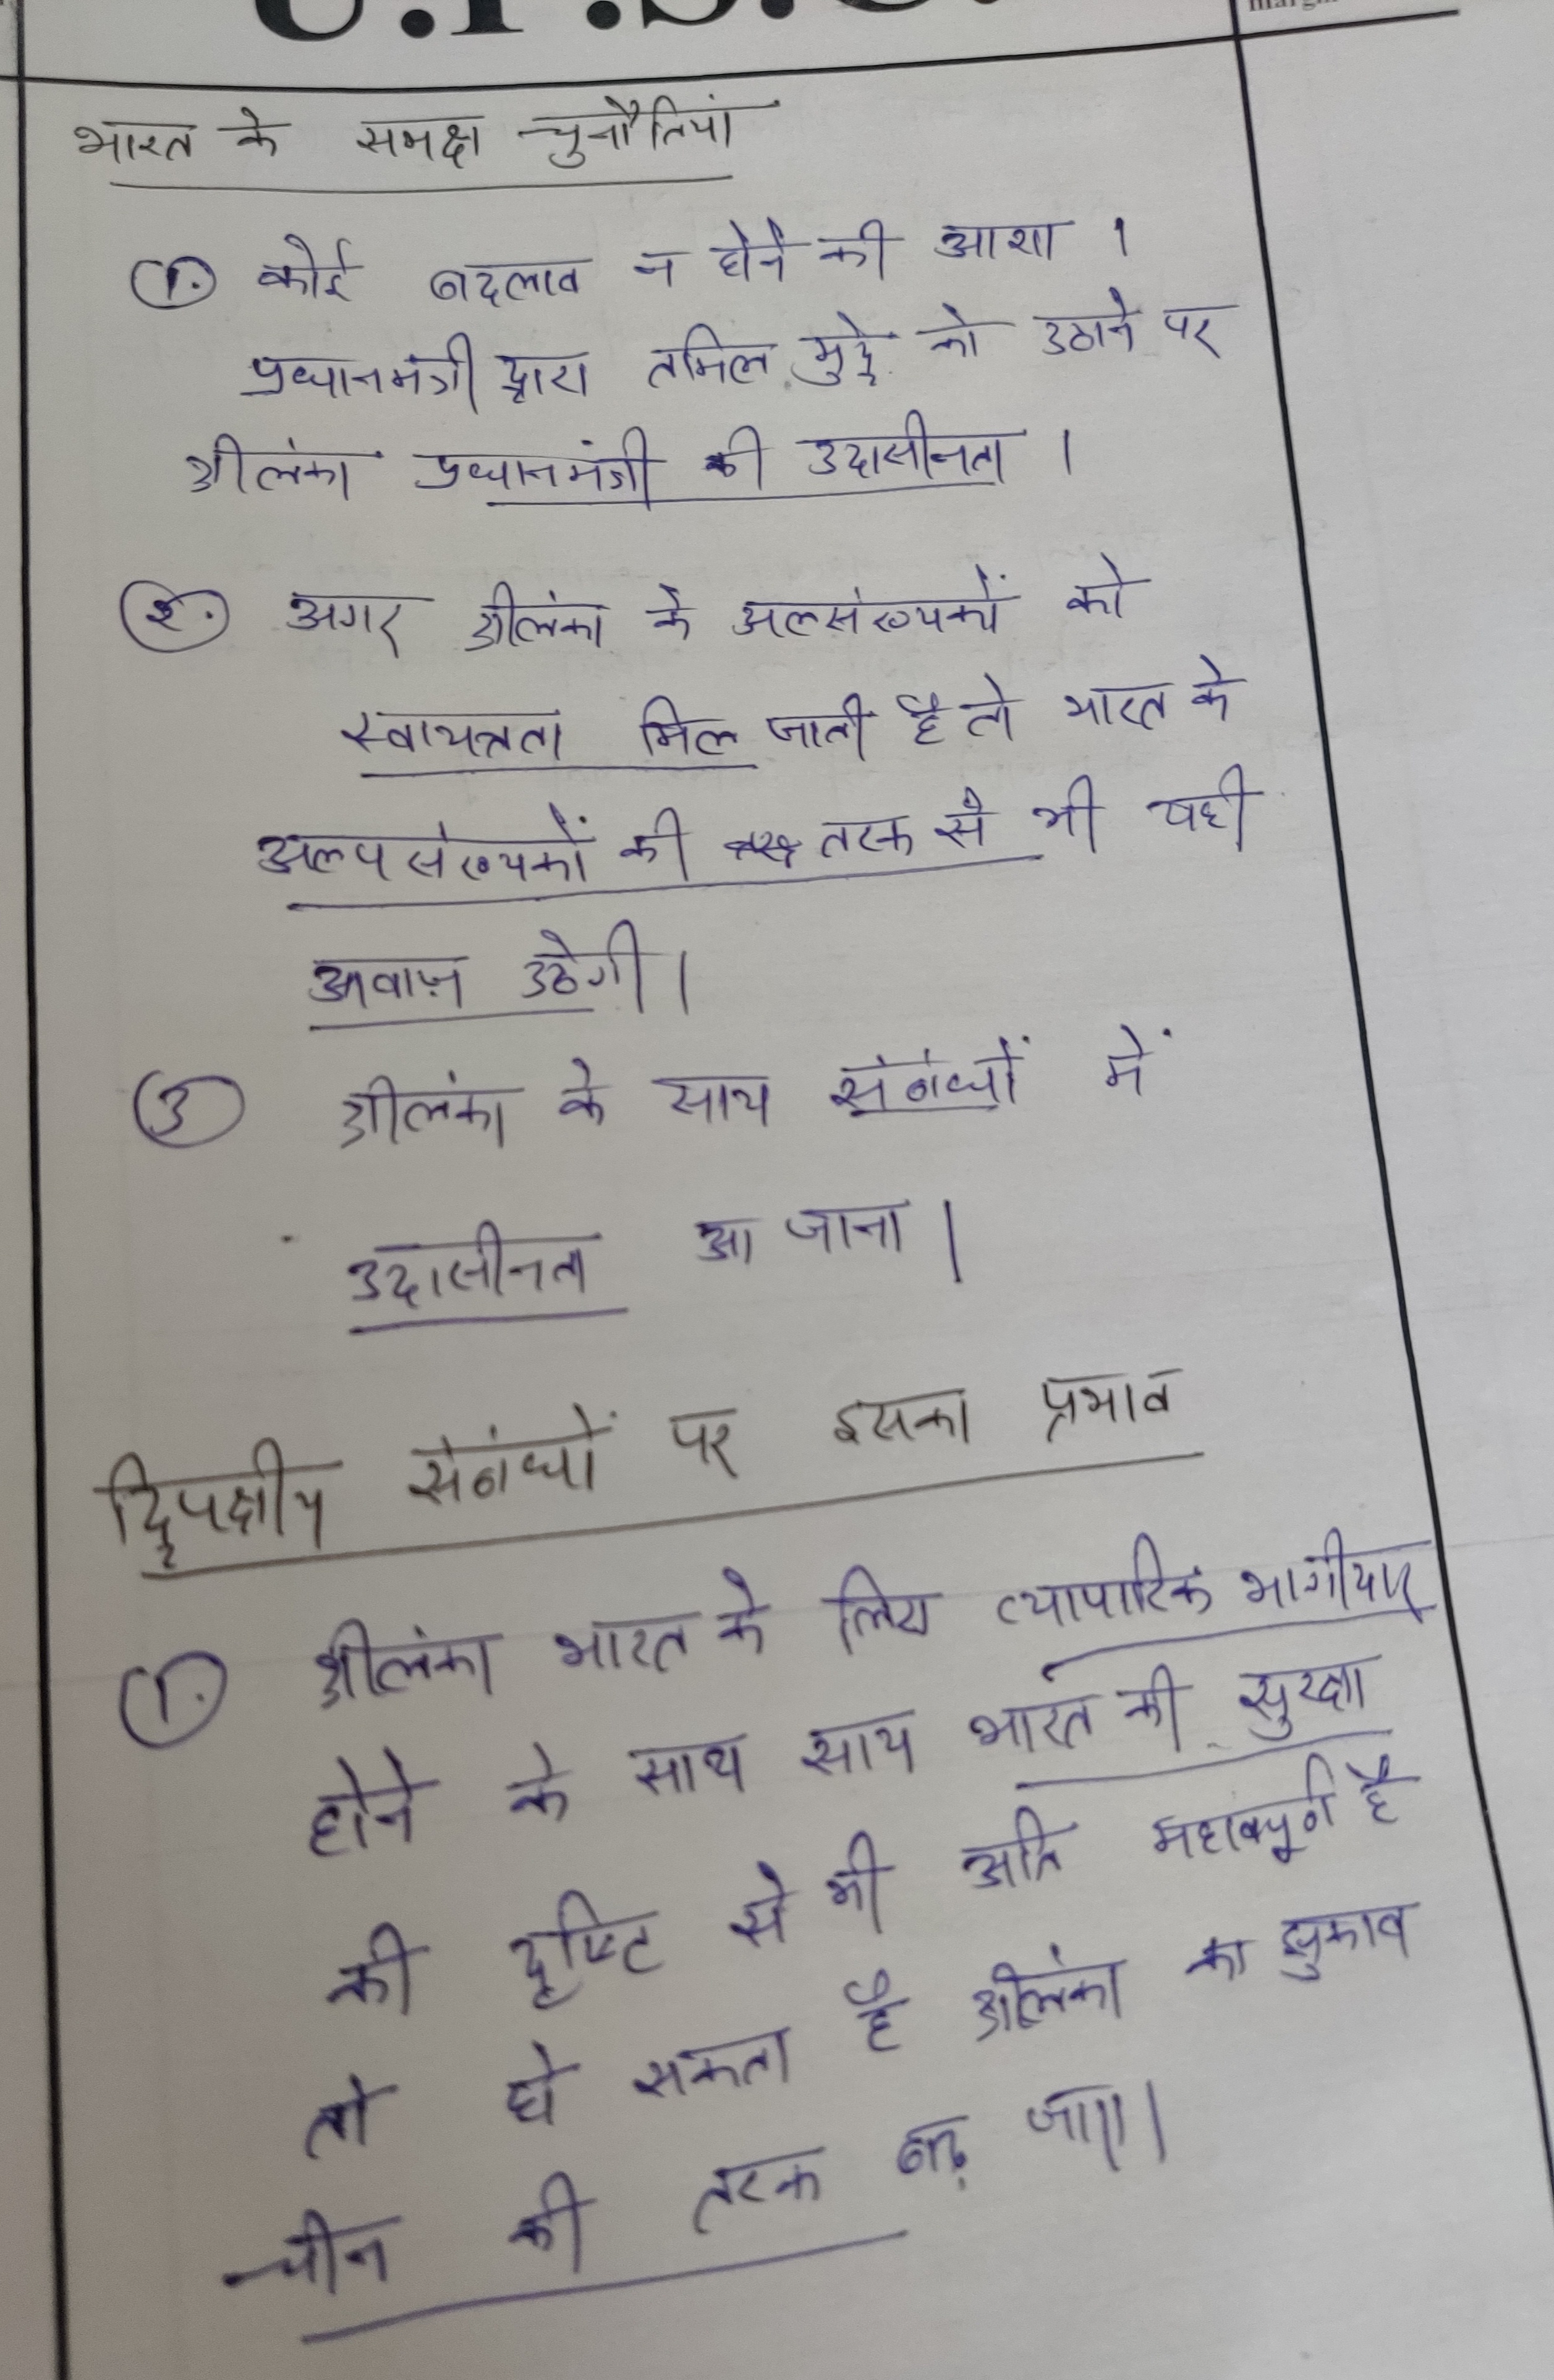 U.P.S.C.
भारत के समक्ष चुनौतियां
1. कोई बदलाव न होने की आशा ।
प्रधानमंत्री द्वारा तमिल मुद्दे को उठाने पर
श्रीलंका प्रधानमंत्री की उदासीनता ।
2. अगर श्रीलंका के अल्संख्यकों को
स्वायत्तता मिल जाती है तो भारत के
अल्पसंख्यकों की तरफ से भी यही
आवाज़ उठेगी ।
3 श्रीलंका के साथ संबंधों में
उदासीनता आ जाना ।
द्विपक्षीय संबंधों पर इसका प्रभाव
1. श्रीलंका भारत के लिए व्यापारिक भागीदार
होने के साथ साथ भारत की सुरक्षा
की दृष्टि से भी अति महत्वपूर्ण है
तो हो सकता है श्रीलंका का झुकाव
चीन की तरफ बढ़ जाए।